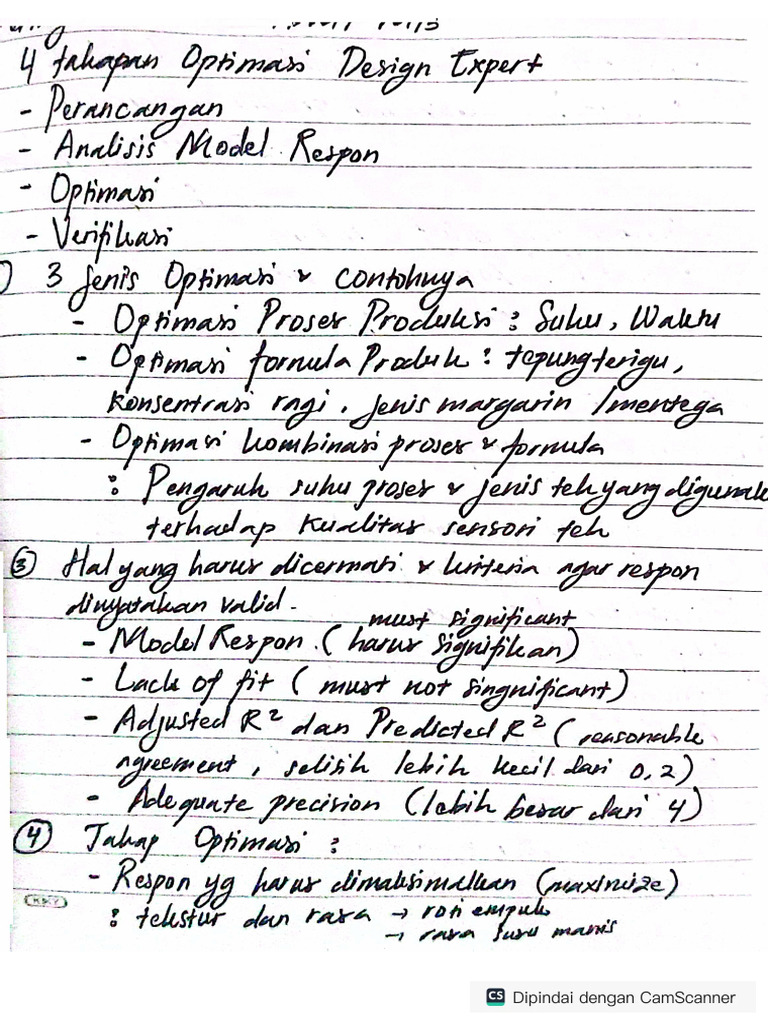 4 tahapan Optimasi Design Expert
- Perancangan
- Analisis Model Respon
- Optimasi
- Verifikasi
3 Jenis Optimasi & contohnya
- Optimasi Proses Produksi : Suhu, Waktu
- Optimasi formula Produk : tepung terigu,
konsentrasi ragi, jenis margarin /mentega
- Optimasi kombinasi proses & formula
: Pengaruh suhu proses & jenis teh yang digunak
terhadap kualitas sensori teh
③ Hal yang harus dicermati & kriteria agar respon
dinyatakan valid.
must significant
- Model Respon. (harus signifikan)
- Lack of fit (must not singnificant)
- Adjusted R² dan Predicted R² (reasonable
agreement, selisih lebih kecil dari 0,2)
- Adequate precision (lebih besar dari 4)
④ Tahap Optimasi :
- Respon yg harus dimaksimalkan (maximize)
: tekstur dan rasa → roti empuk
→ rasa susu manis
CS Dipindai dengan CamScanner